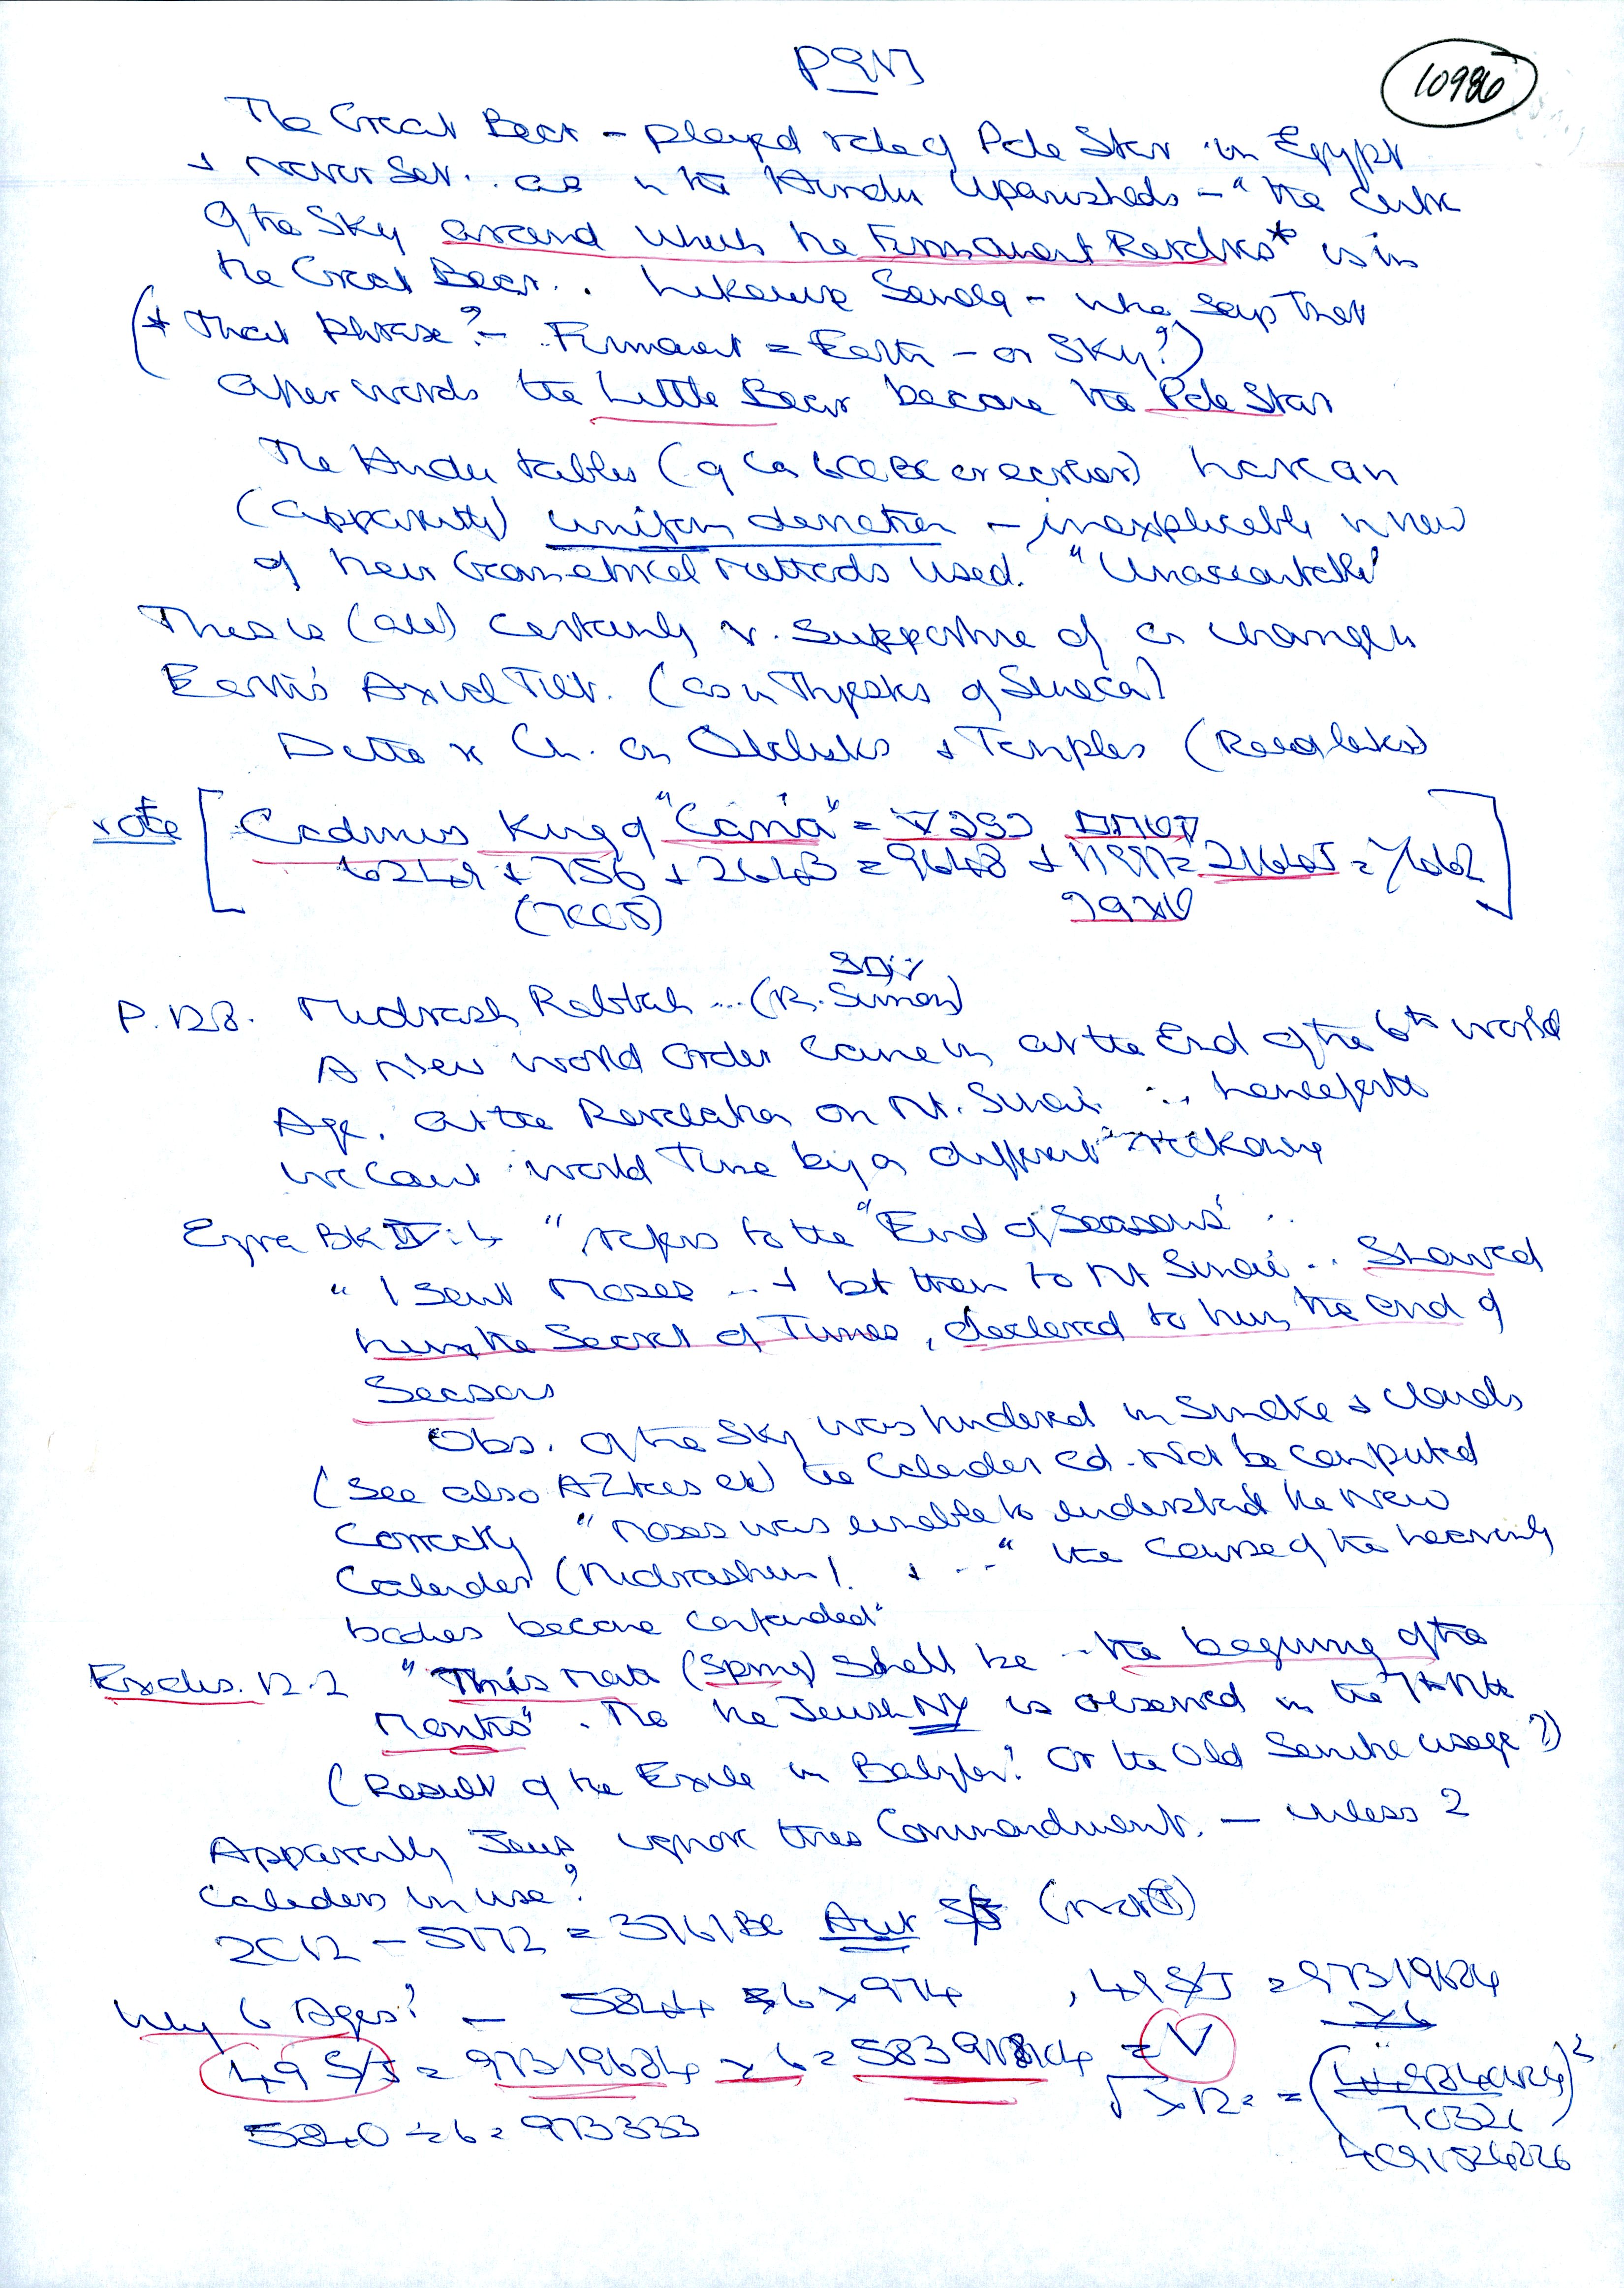 10986
The Great Bear - played role of Pole Star in Egypt
+ never set. . as in the Hindu Upanishads - "the centre
of the Sky around which the Firmament Revolves* is in
the Great Bear. . Likewise Seneca - who says that
(* That phrase? - Firmament = Earth - or Sky?)
afterwards the Little Bear became the Pole Star
The Hindu tables (of Ca BC or earlier) have an
(apparently) uniform deviation - inexplicable in view
of their Geometrical Methods used.
This is (all) certainly v. supportive of a change in
Earth's Axial Tilt. (as in Thyestes of Seneca)
Ditto x Ch. on Obelisks + Temples
note [Cadmus King of "Caria" =
+ 756 + 2643 = 9648 + =
P. 128. Midrash Rabbah ... (R. Simon)
A New World Order came in at the End of the 6th World
Age. at the Revelation on Mt. Sinai . . . henceforth
we count world Time by a different reckoning
Ezra BK IV: 4 "refers to the "End of Seasons" . .
"I sent Moses ... + bt them to Mt Sinai . . Showed
him the Secret of Times, declared to him the end of
Seasons
Obs. of the Sky was hindered in Smoke & clouds
(See also Aztecs etc) the Calendar cd. not be computed
Correctly "Moses was unable to understand the New
Calendar (Midrashim). + ... "the course of the heavenly
bodies became confounded"
Exodus. 12.2 "This Mnth (Spring) shall be ... the beginning of the
Months". Tho the Jewish NY is observed in the 7th Mth
(Result of the Exile in Babylon? Or the Old Semitic usage?)
Apparently Jews ignore this Commandment. - unless 2
Calendars in use?
2012 - 5772 = 3761 BC
Why 6 Ages? - 5844 6 x 974 , 49 S/J = 97319684
x 6
49 S/J = 97319684 x 6 = = V
√ x 12 =
5840 ÷ 6 = 973333